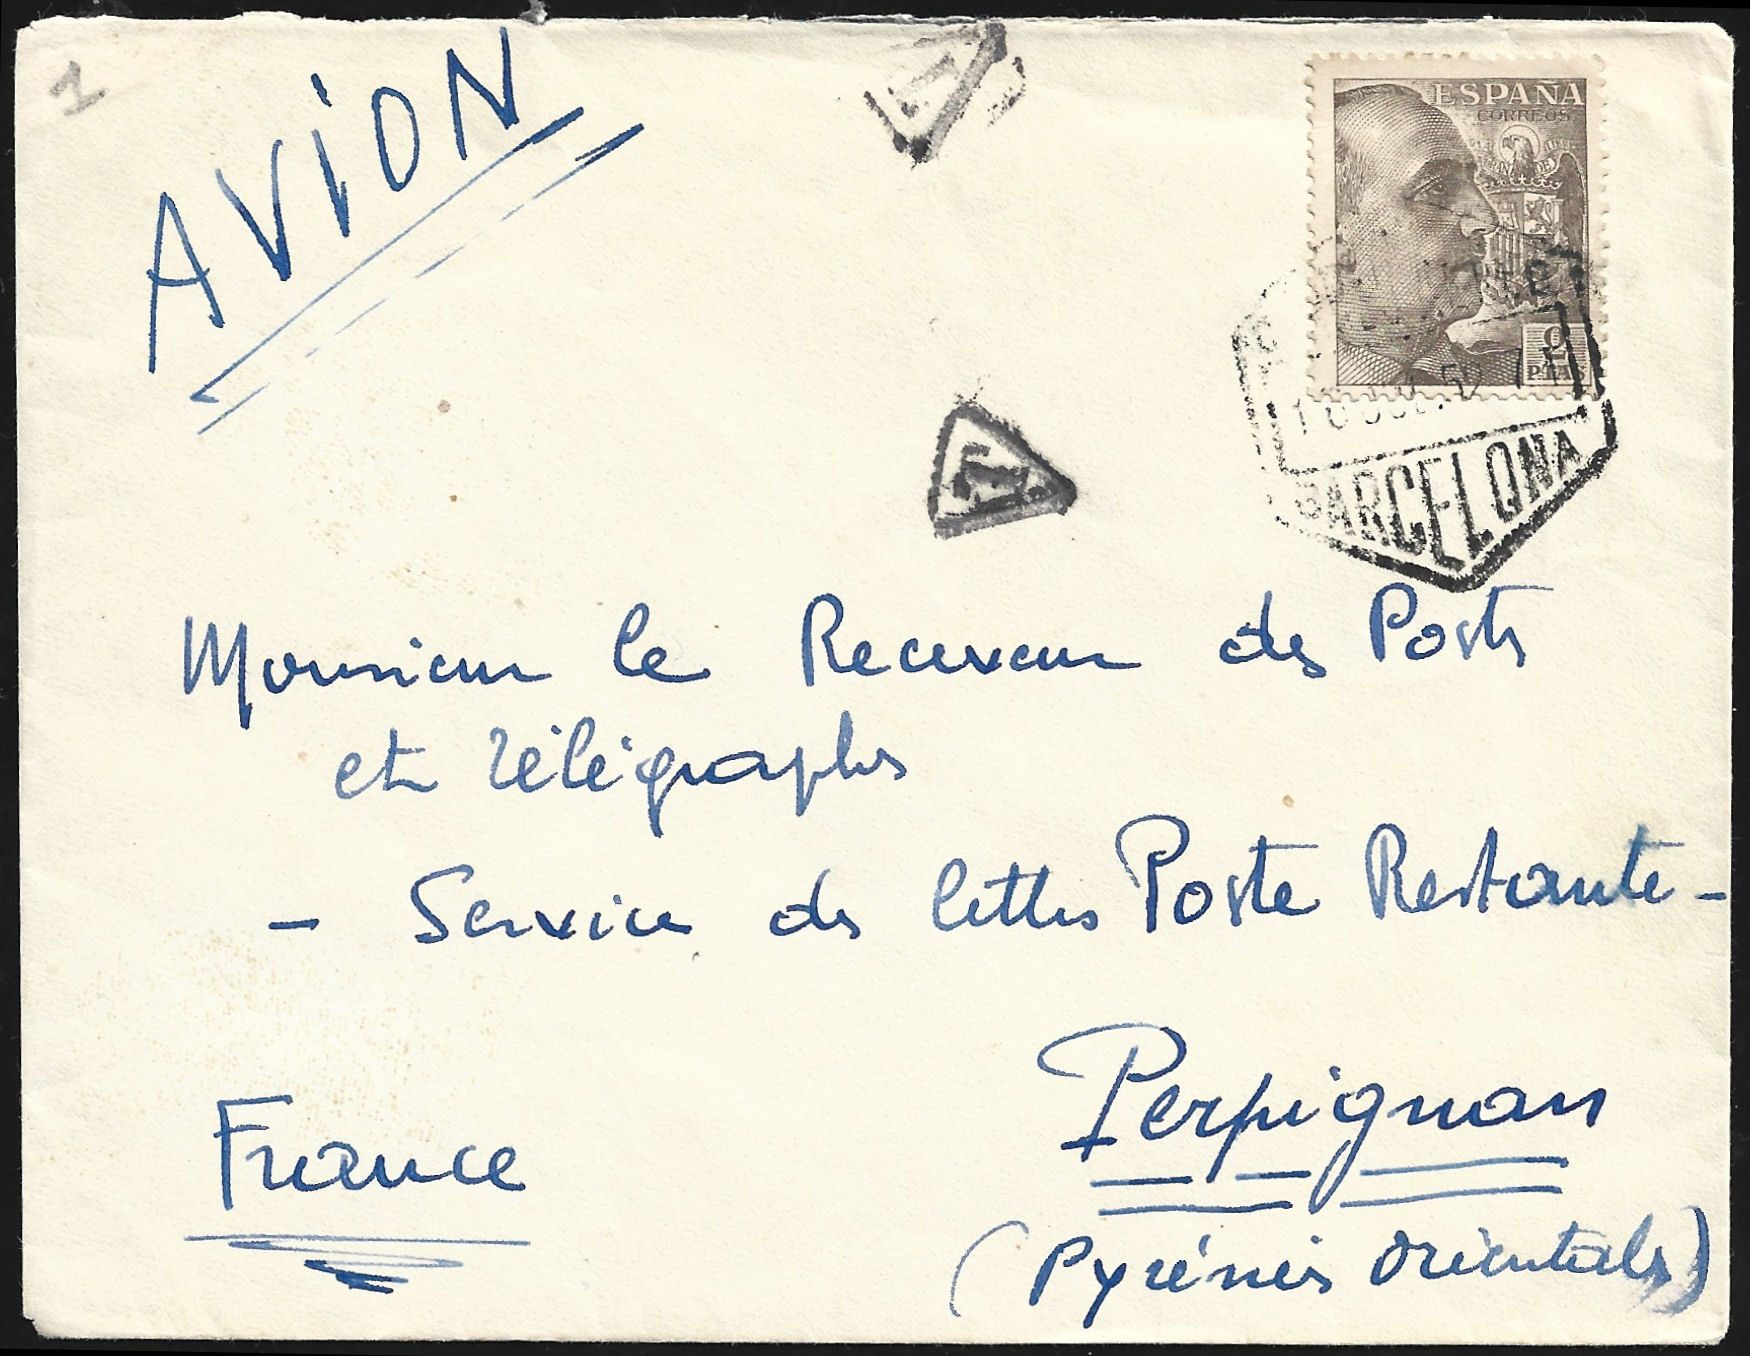 1
AVION
T
ESPAÑA
CORREOS
2
PTAS
T
BARCELONA
Monsieur le Receveur des Postes
et Télégraphes
- Service des lettres Poste Restante -
Perpignan
France
(Pyrénées Orientales)